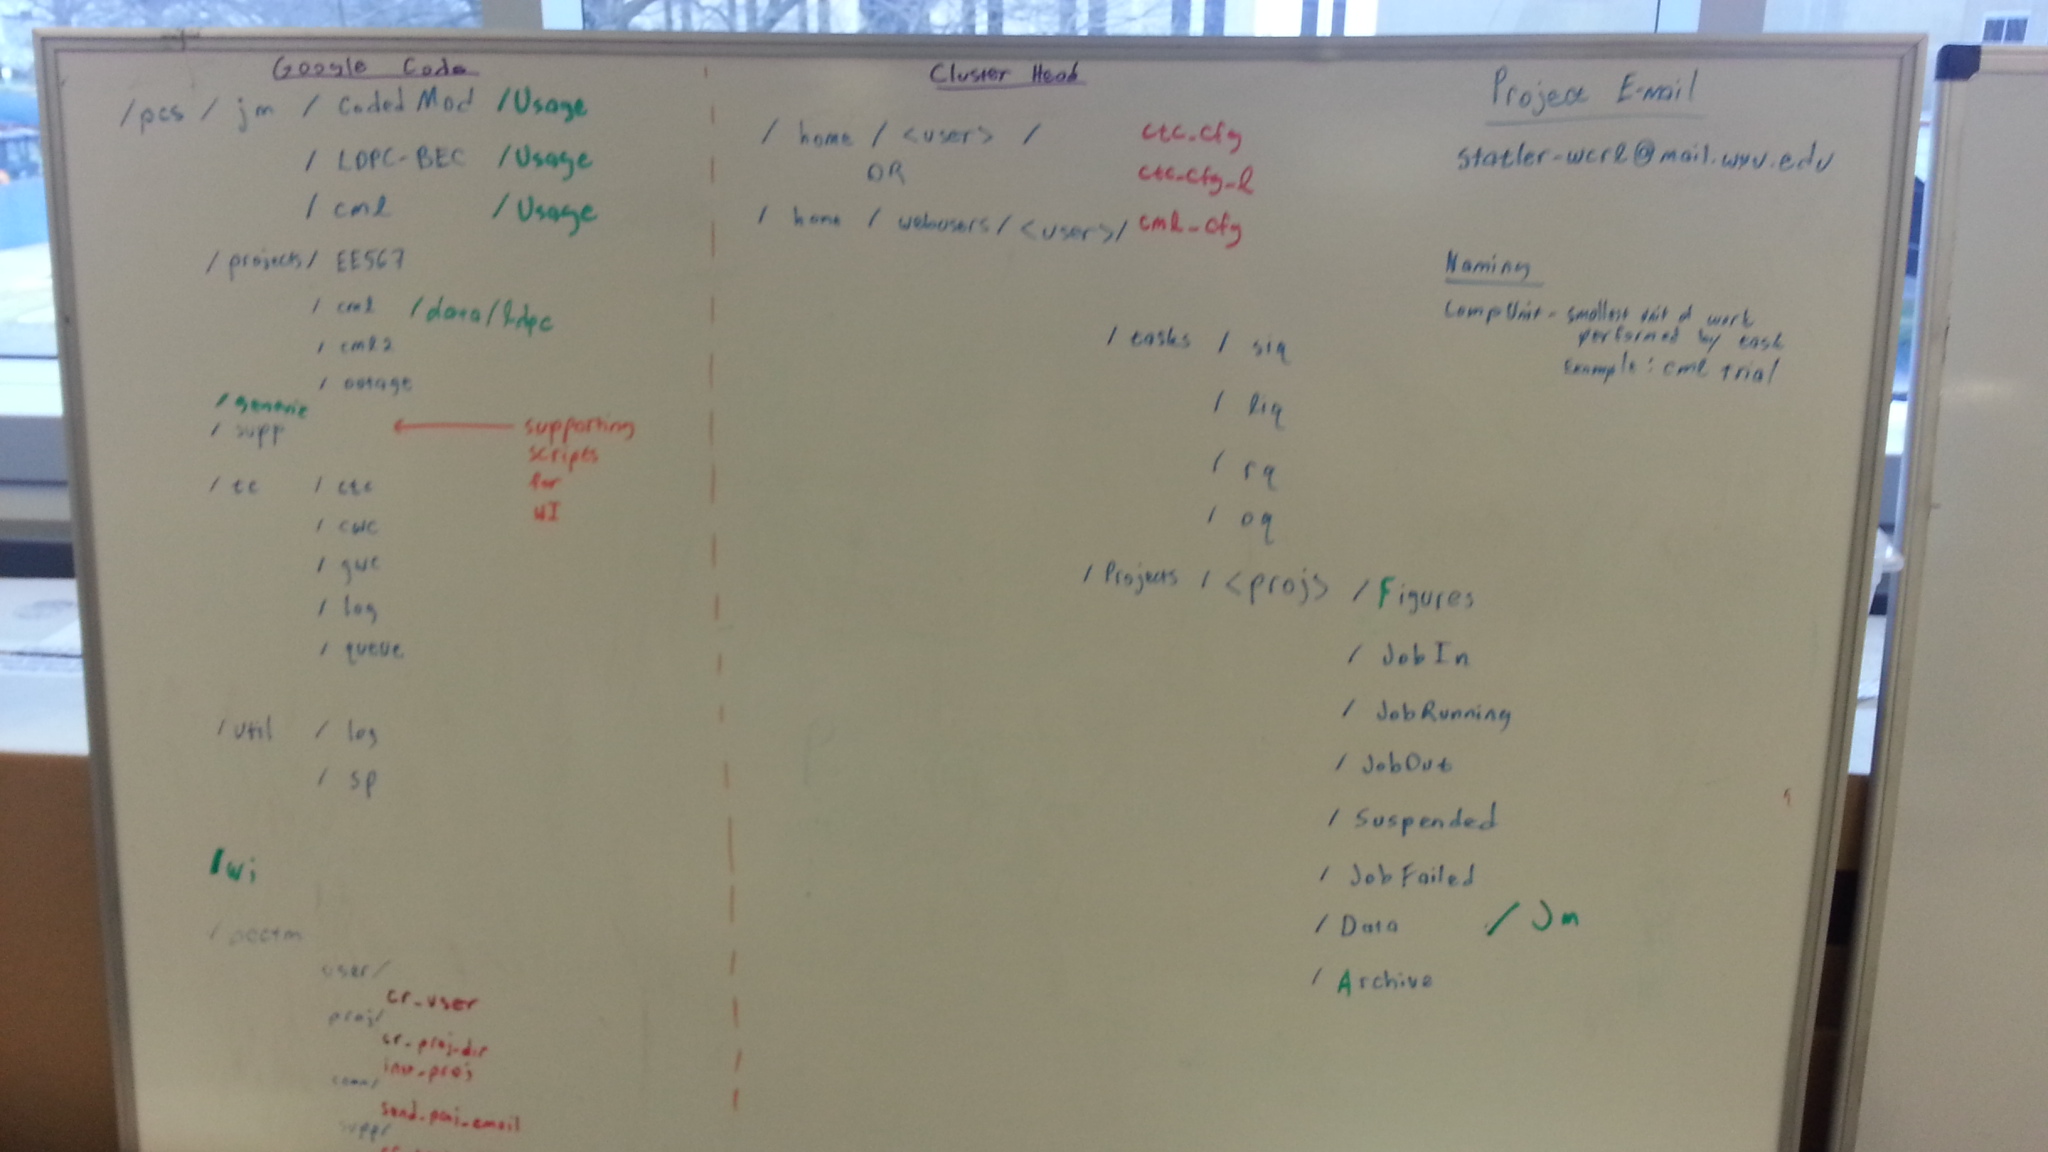 Google Code
/pcs / jm / Coded Mod /Usage
/ LDPC-BEC /Usage
/ cml /Usage
/ projects / EE567
/ cml /data/ldpc
/ cml2
/ outage
/generic
/ supp
supporting
scripts
for
WI
/ tc / ctc
/ cwc
/ gwc
/ log
/ queue
/ util / log
/ sp
/wi
user/
cr_user
proj/
cr_proj_dir
comm/
supp/
Cluster Head
/ home / <user> / ctc_cfg
OR ctc_cfg_l
/ home / webusers / <user>/ cml_cfg
/ tasks / siq
/ liq
/ rq
/ oq
/ Projects / <proj> / Figures
/ JobIn
/ JobRunning
/ JobOut
/ Suspended
/ JobFailed
/ Data / Jm
/ Archive
Project E-mail
statler-wcrl@mail.wvu.edu
Naming
CompUnit - smallest unit of work
performed by task
Example: cml trial